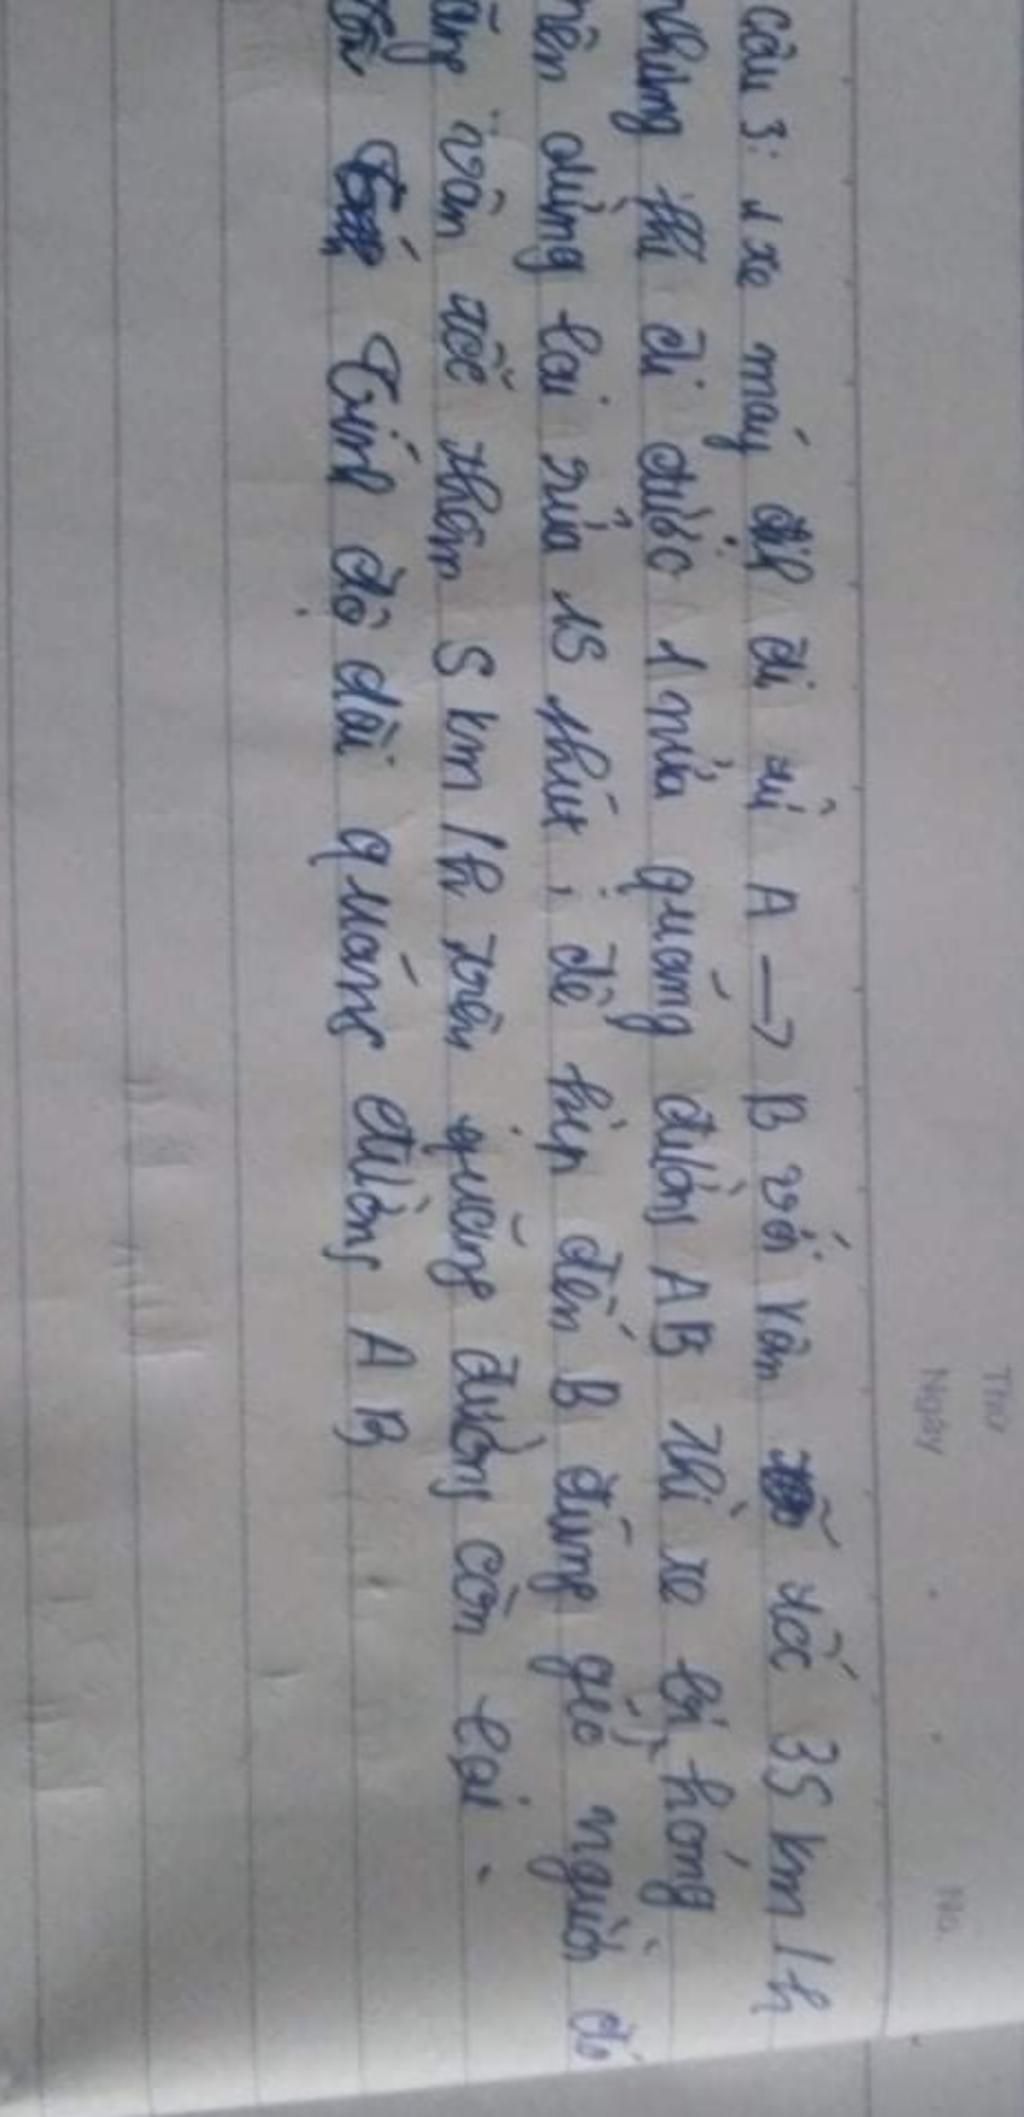 Thứ
Ngày No.
Câu 3: 1 xe máy đi từ A → B với vân tốc 35 km/h
nhưng khi đi được 1 nửa quãng đường AB thì xe bị hỏng
nên dừng lại sửa 15 phút, để kịp đến B đúng giờ người đó
tăng vân tốc thêm 5 km/h trên quãng đường còn lại.
Tính độ dài quáng đường AB